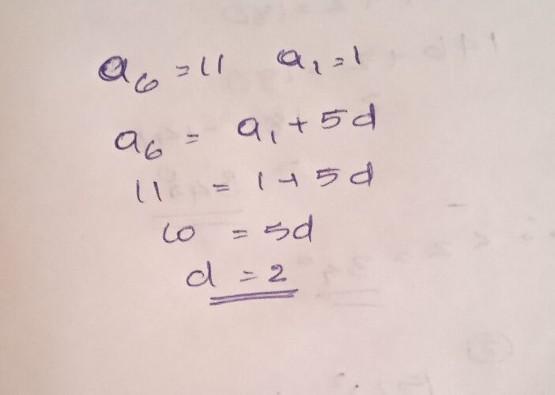 a₆ = 11 a₁ = 1
a₆ = a₁ + 5d
11 = 1 + 5d
10 = 5d
d = 2